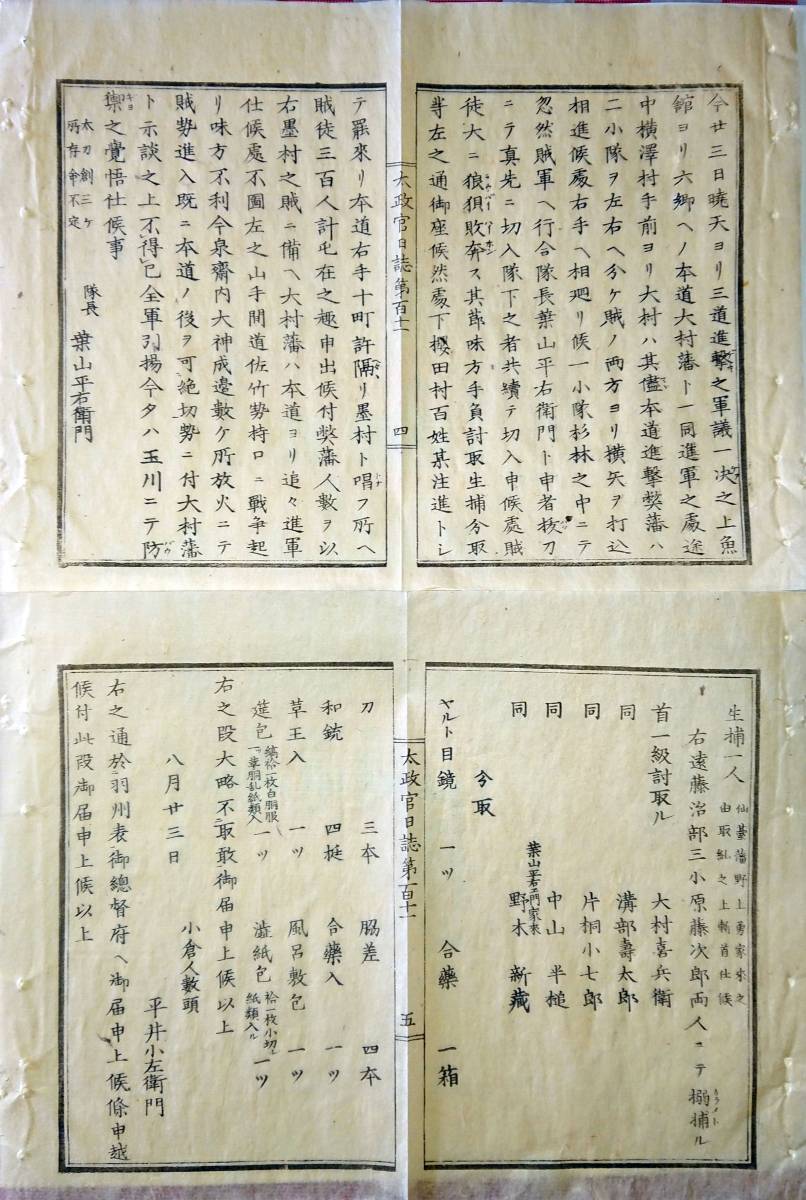 今廿三日曉天ヨリ三道進擊之軍議一决之上魚
舘ヨリ六郷ヘノ本道大村藩ト一同進軍之處途
中横澤村手前ヨリ大村ハ其儘本道進擊獘藩ハ
二小隊ヲ左右ヘ分ケ賊ノ両方ヨリ横矢ヲ打込
相進候處右手ヘ相廻リ候一小隊杉林之中ニテ
忽然賊軍ヘ行合隊長葉山平右衛門ト申者拔刀
ニテ真先ニ切入隊下之者共續テ切入申候處賊
徒大ニ狼狽敗奔ス其莭味方手負討取生捕分取
等左之通御座候然處下櫻田村百姓某注進トシ
太政官日誌第百十一
四
テ羅來リ本道右手十町許隔リ墨村ト唱フ所ヘ
賊徒三百人計屯在之趣申出候付獘藩人數ヲ以
右墨村之賊ニ備ヘ大村藩ハ本道ヨリ追々進軍
仕候處不圖左之山手間道佐竹勢持口ニ戰争起
リ味方不利今泉齋内大神成邉數ケ所放火ニテ
賊勢進入既ニ本道ノ後ヲ可絶切勢ニ付大村藩
ト示談之上不得已全軍引揚今夕ハ玉川ニテ防
禦之覺悟仕候事
隊長 葉山平右衛門
太刀創三ケ
所存命不定
生捕一人
仙䑓藩野上勇家來之
由取糺之上斬首仕候
右遠藤治部三小原藤次郎両人ニテ搦捕ル
首一級討取ル 大村喜兵衛
同 溝部壽太郎
同 片桐小七郎
同 中山半槌
同 葉山平右エ門家来 野木新藏
分取
ヤルト目鏡 一ツ 合藥 一箱
太政官日誌第百十一
五
刀 三本 脇差 四本
和銃 四挺 合藥入 一ツ
草王入 一ツ 風呂敷包 一ツ
莚包 縞袷一枚白胴服一ツ革胴乱紙類入 一ツ 澁紙包 袷一枚小切レ紙類入ル 一ツ
右之段大略不取敢御届申上候以上
小倉人數頭
八月廿三日 平井小左衛門
右之通於羽州表御總督府ヘ御届申上候條申越
候付此段御届申上候以上